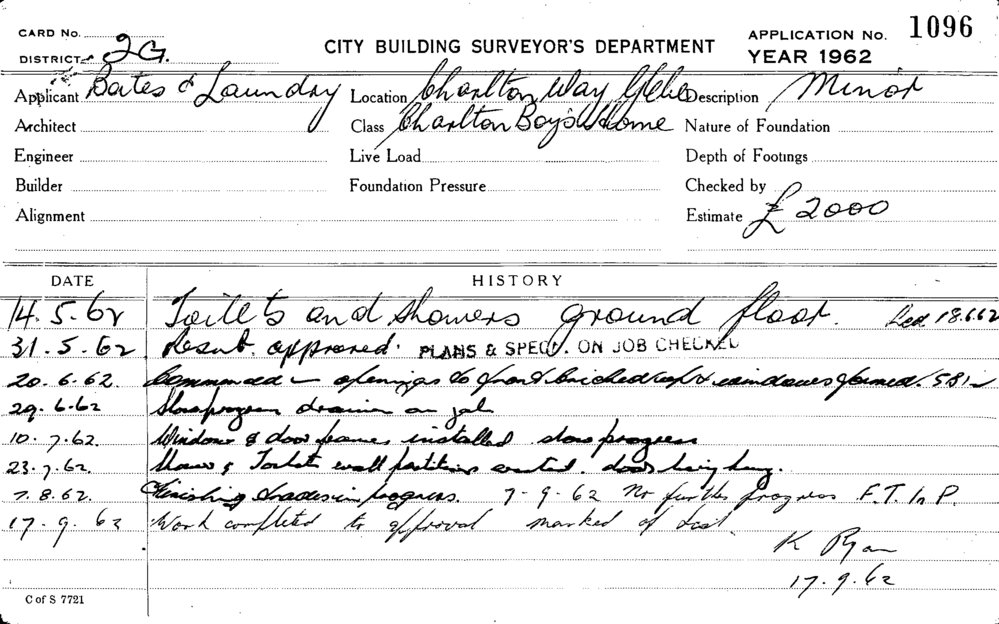 CARD No.
DISTRICT 2G.
CITY BUILDING SURVEYOR'S DEPARTMENT
APPLICATION No. 1096
YEAR 1962
Applicant Bates & Laundry
Location Charlton Way Glebe
Description Minor
Architect
Class Charlton Boy's Home
Nature of Foundation
Engineer
Live Load
Depth of Footings
Builder
Foundation Pressure
Checked by
Alignment
Estimate £ 2000
DATE
HISTORY
14.5.62 Toilets and showers ground floor. Red 18.6.62
31.5.62 approved. PLANS & SPECN. ON JOB CHECKED
20.6.62. Commenced openings to front bricked up & windows formed.
29.6.62 Slow progress on job
10.7.62. Window & door frames installed slow progress
23.7.62. & Toilets wall partitions erected. doors being hung.
7.8.62. Finishing trades in progress. 7-9-62 No further progress F.T.In P.
17.9.62 Work completed to approval marked of
K Ryan
17.9.62
C of S 7721